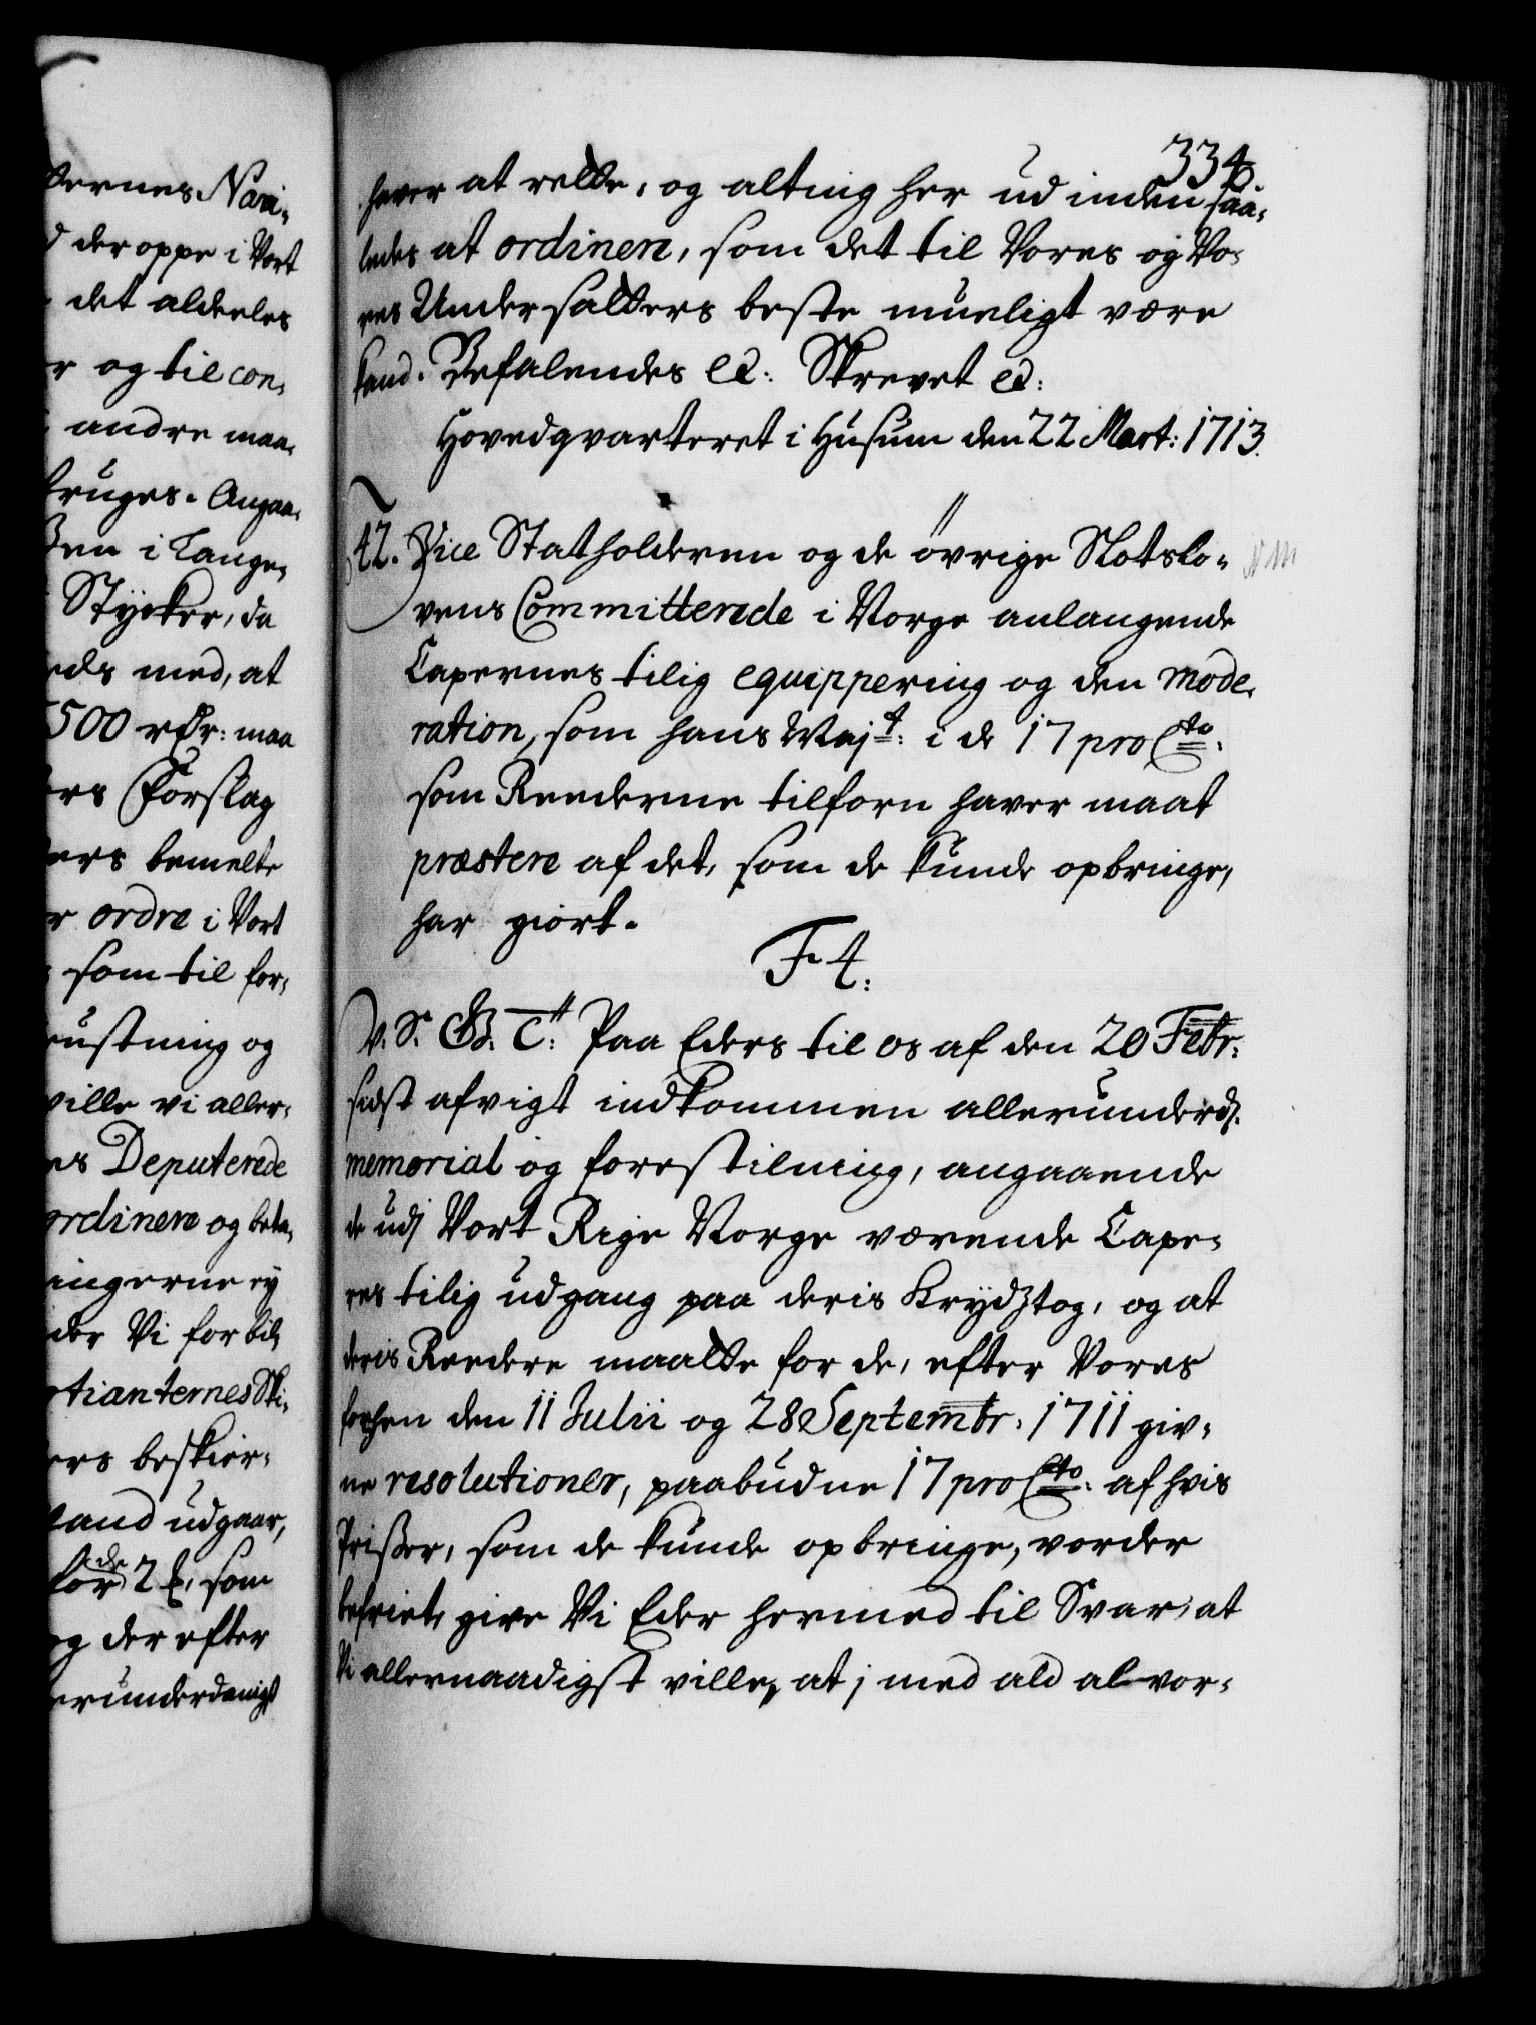 ternes Navi-
d der oppe i Vort
det aldeeles
r og til con-
andre maa-
bruges. Angaa-
Sten i Lange-
Stycker, da
eds med, at
500 rdr: maa
ers Forslag
ers bemelte
r ordre i Vort
som til for-
rustning og
ville vi aller-
es Deputerede
ordinere og beta-
ingerne ey
der Vi for bil-
tianternes Ski-
ers beskier-
land udgaar,
for de 2 som
og der efter
erunderdanigst
334.
haver at rette, og alting her ud inden saa-
ledes at ordinere, som det til Vores og Vo-
res Undersatters beste mueligt være
kand. Befalendes etc: Skrevet etc:
Hovedqvarteret i Husum den 22 Mart: 1713.
42. Vice Statholderen og de övrige Slotslo-
vens Committerede i Norge anlangende
Capernes tilig equippering og den mode-
ration, som hans Maj:t: i de 17 pro Cto:
som Reederne tilforn haver maat
præstere af det, som de kunde opbringe,
har giort.
F 4:
V. S. G. T: Paa Eders til os af den 20 Febr:
sidst afvigt indkommen allerunderd:
memorial og forestilning, angaaende
de udj Vort Rige Norge værende Cape-
res tilig udgang paa deris Krydztog, og at
deris Reedere maatte for de, efter Vores
forhen den 11 Julii og 28 Septembr: 1711 giv-
ne resolutioner, paabudne 17 pro Cto: af hvis
Prisser, som de kunde opbringe, vorder
befriet, give Vi Eder hermed til Svar, at
Vi allernaadigst ville, at j med ald alvor-